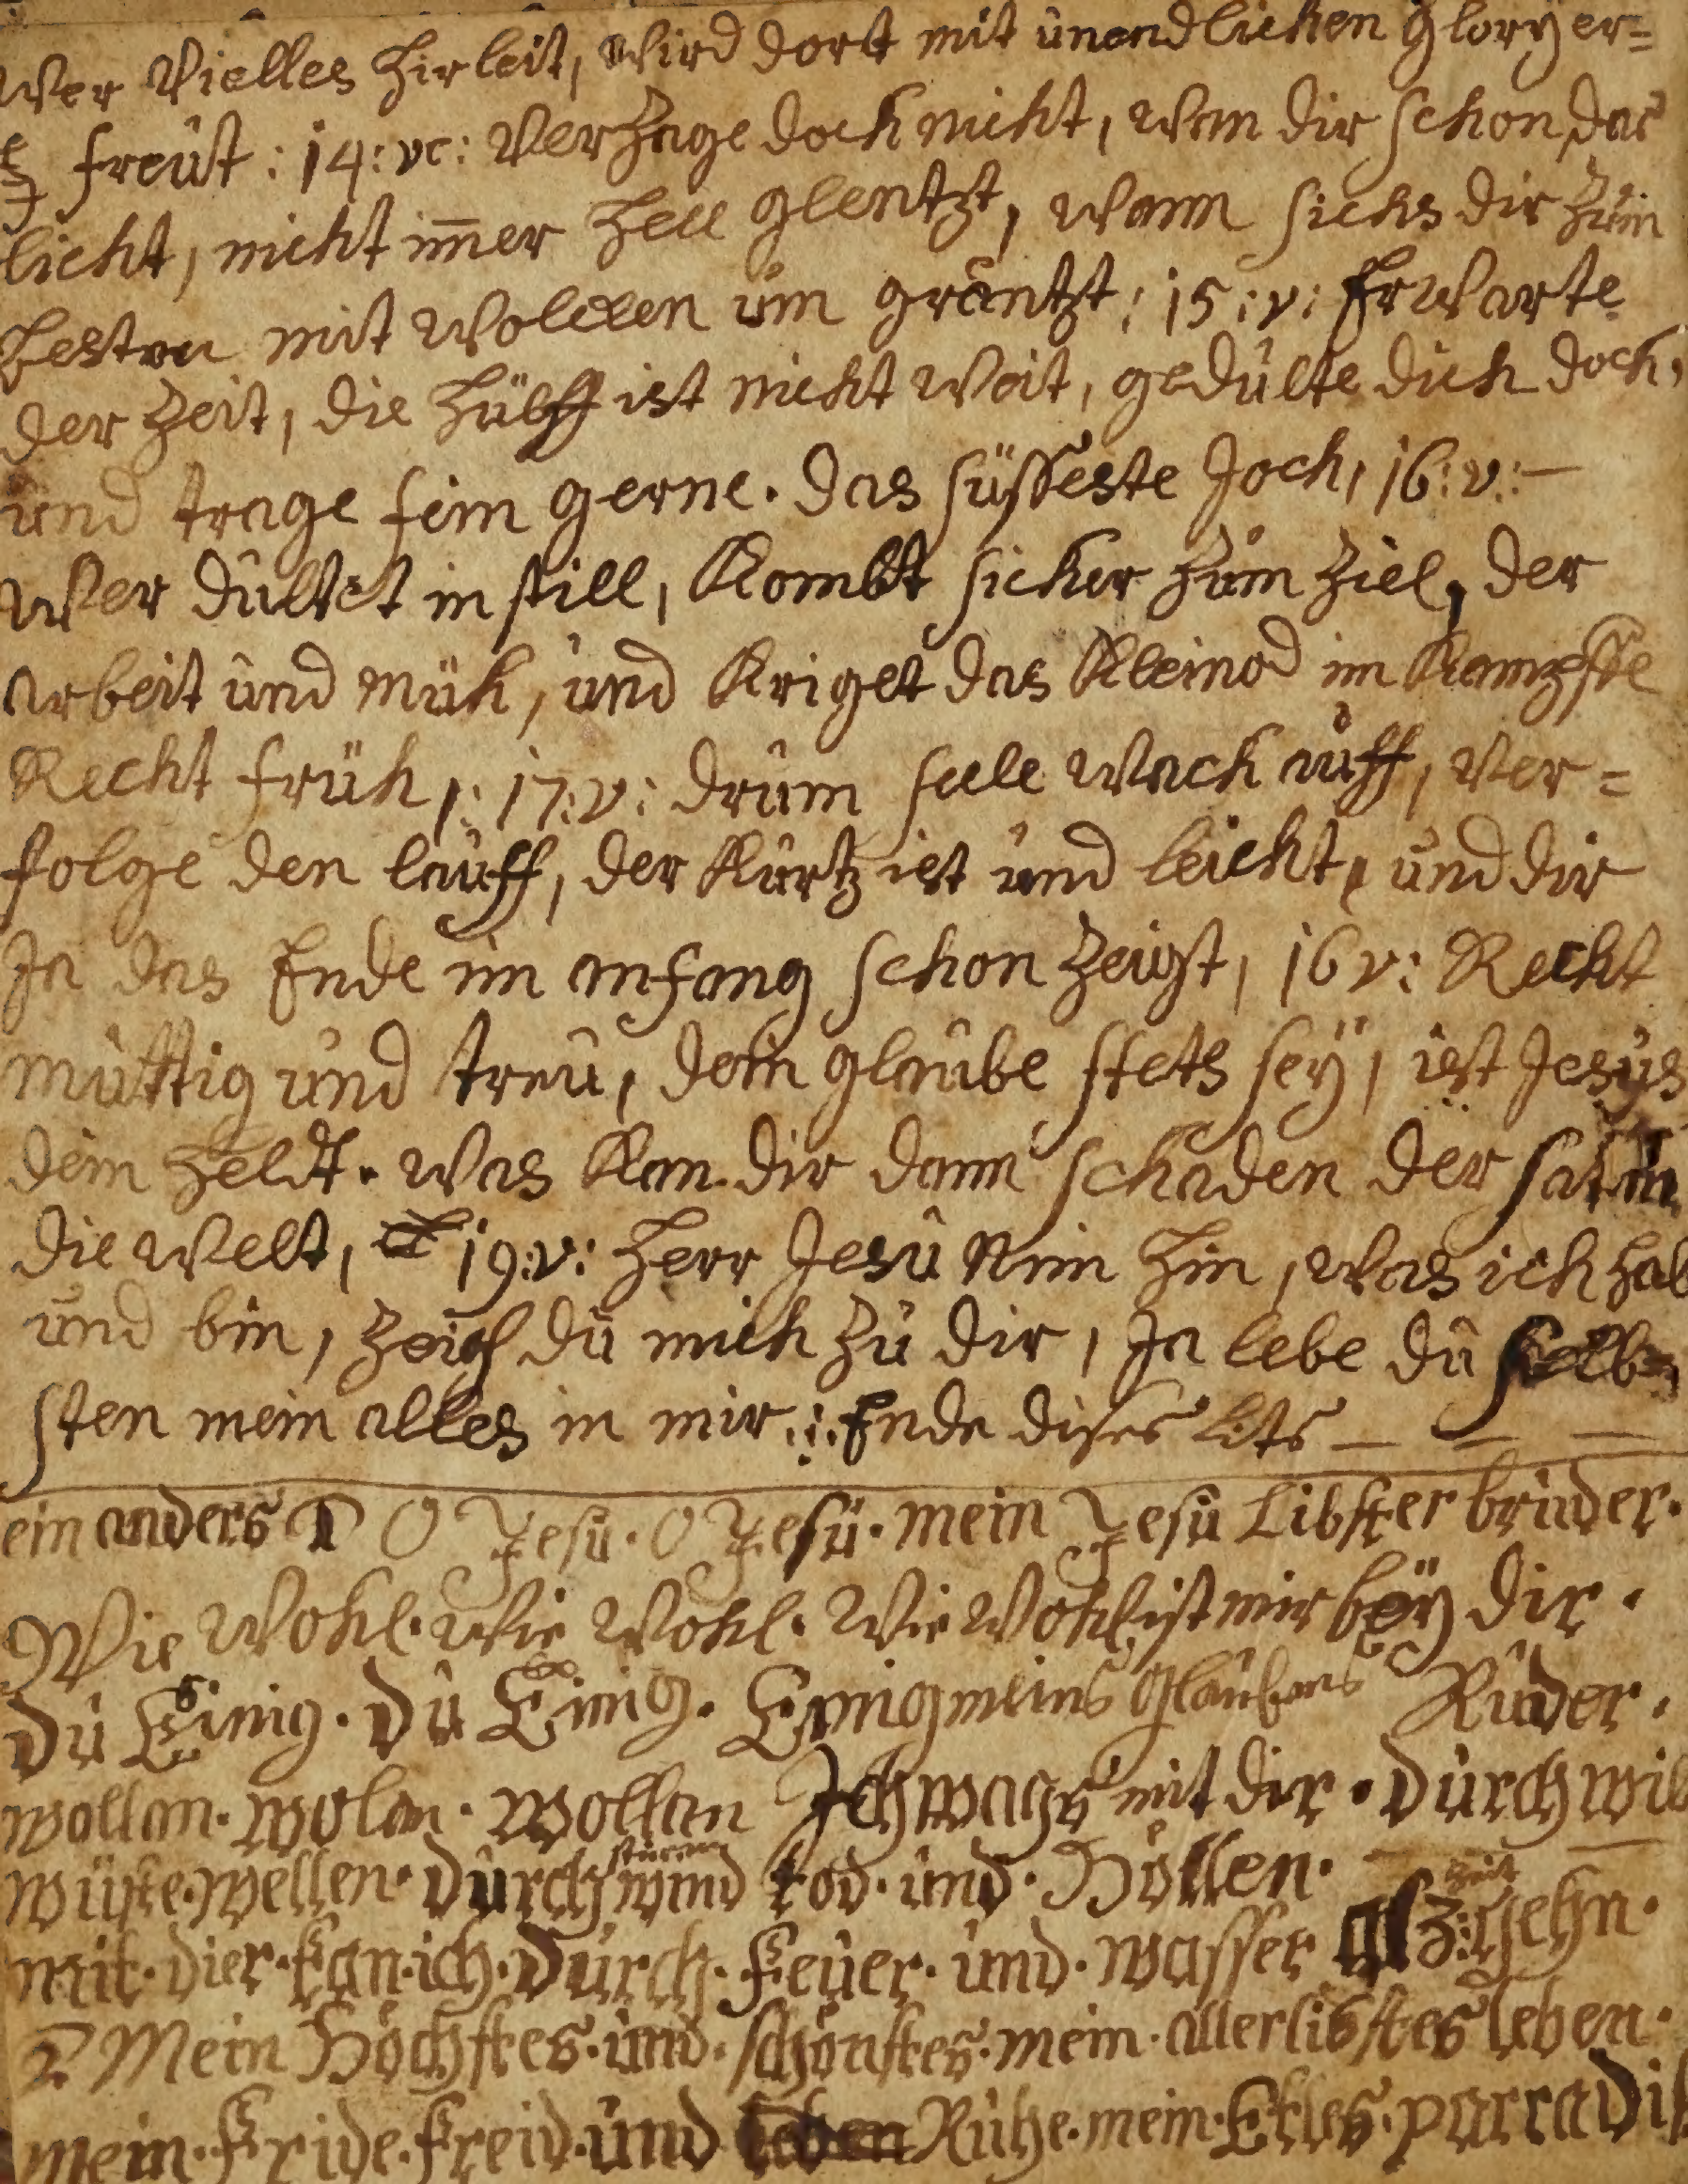 Wer Vielles hir leit, Wird dort mit ûnendlichen Glory er=
freûst : 14: vc: Verzage doch nicht, Wan dir schon das
licht, nicht im̄er hell glentzt, Wann sichs dir Zûm
besten mit Wolcken ûm gräntzt : 15 : v: Erwarte
der Zeit, die hülff ist nicht Weit, gedûlte dich doch,
ûnd trage fein gerne. das süsseste Joch, 16: v: —
Wer dûltet in still, Kombt sicher Zûm Ziel, der
arbeit ûnd müh, ûnd Kriget das Kleinod im Kampffe
Recht früh ,: 17: v: drûm seele Wach aûff, Ver=
folge den laûff, der Kûrtz ist ûnd leicht, ûnd dir
Ja das Ende im anfang schon Zeigt, 16 v: Recht
mûttig ûnd treû, dein glaûbe stets seÿ, ist Jesûs
dein heldt. Was Kan dir dann schaden der satan
die Welt, 19: v: Herr Jesû Nim hin, Was ich hab
ûnd bin, Zeich dû mich Zû dir, Ja lebe dû selb=
sten mein alles in mir .:. Ende dises lits — — —
ein anders 1 O Jesû. O Jesü. mein Jesû Libster brûder.
Wie Wohl. Wie Wohl. Wie Wohl ist mir beÿ dir.
dû Einig. dû Einig. Einig meins Glaûbens Rûder.
wollan. wolan. wollan Ich wags mit dir. dûrch wil
wüste wellen. dûrch stürm wind tod. ûnd. Höllen.
mit. dier. kan. ich. dûrch. feûer. ûnd. wasser gehn.
2 Mein Höchstes. ûnd. schönstes. mein. allerlibstes leben.
mein. fride. freid. ûnd Rûhe. mein. Erles. parradis